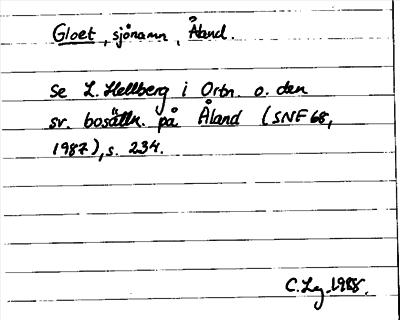 Gloet, sjönamn, Åland.
Se L. Hellberg i Ortn. o. den
sv. bosättn. på Åland (SNF 68,
1987), s. 234.
C. Lg. 1988.